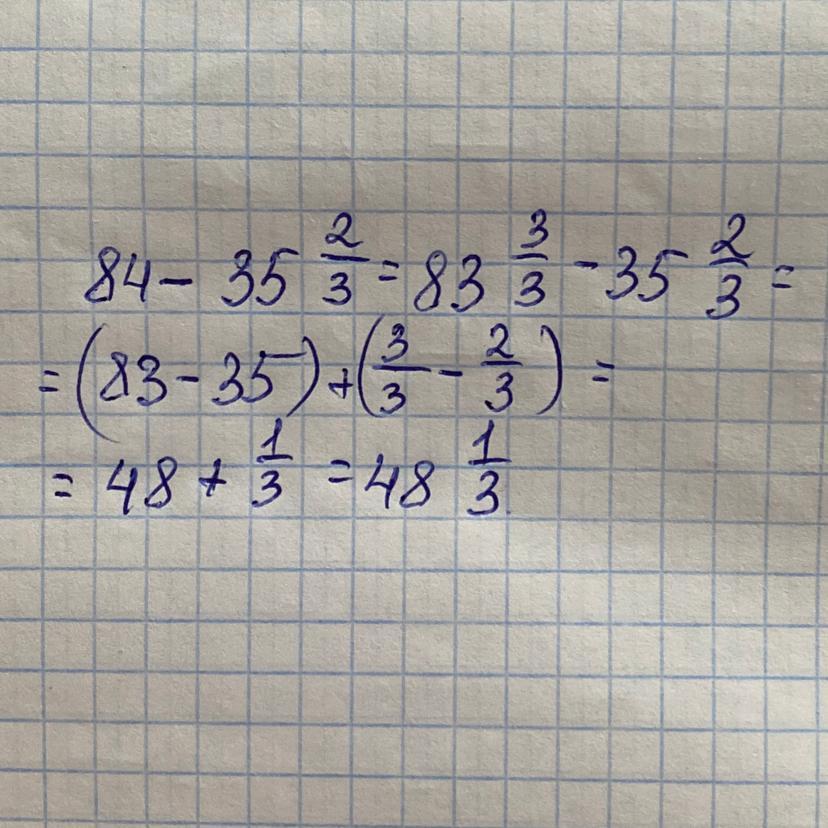 84 - 35 2/3 = 83 3/3 - 35 2/3 =
= (83 - 35) + (3/3 - 2/3) =
= 48 + 1/3 = 48 1/3